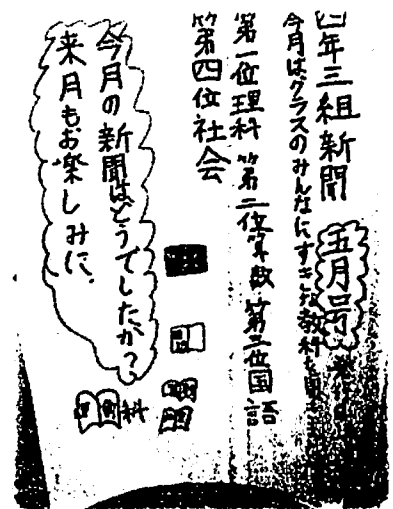 四年三組新聞 五月号
今月はクラスのみんなにすきな教科を
第一位理科 第二位算数 第三位国語
第四位社会
今月の新聞はどうでしたか?
来月もお楽しみに.